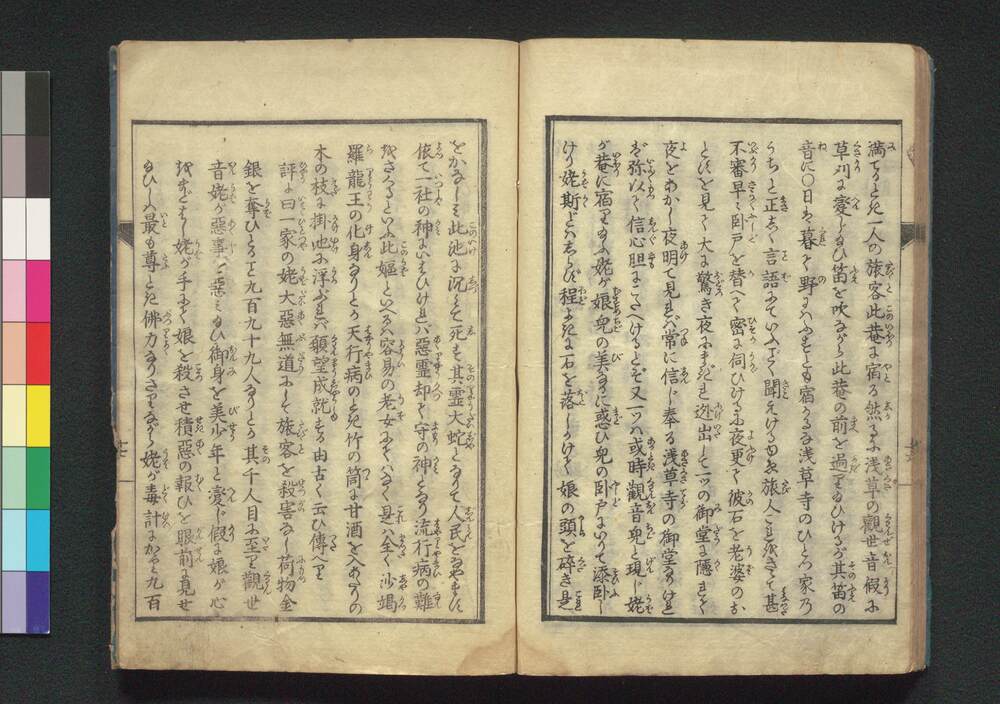 満てるとき一人の旅客此菴に宿る然るに浅草の觀世音假に
草刈に変じ給ひ笛を吹ながら此菴の前を過給ひけるが其笛の
音に〇日は暮て野にはふすとも宿かるな浅草寺のひとつ家の
うちと正しく言語にていふごとく聞えけるゆゑ旅人これをきゝて甚
不審早々臥戸を替へて密に伺ひけるに夜更て彼石を老婆のお
とすを見て大に驚き夜にまぎれ迯出して一ツの御堂に隠れて
夜をあかし夜明て見れば常に信じ奉る浅草寺の御堂なりければ
弥以て信心胆にこたへけるとぞ又一ツハ或時觀音兒と現じ姥
が巷に宿り給ふ姥が娘兒の美なるに惑ひ兒の臥戸にいりて添臥し
けり姥斯とはしらず程よきに石を落しかけて娘の頭を碎き是
をかなしみ此池に沉みて死す其霊大蛇となりて人民をなやますに
依て一社の神にいはひければ悪霊却て守の神となり流行病の難
をさくるといふ此嫗といへるハ容易の老女にてハなく是八全く沙竭
羅龍王の化身なりとかや疫病のとき竹の筒に甘酒を入あたりの
木の枝に掛池に浮ぶれバ願望成就する由古く云ひ傳へり
評に曰一家の姥大惡無道にして旅客を殺害なし荷物金
銀を奪ひとること九百九十九人なりとか其千人目に至り觀世
音姥が悪事を惡ミ給ひ御身を美少年と変じ假に娘が心
をまどはし姥が手にて娘を殺させ積悪の報ひを眼前に見せ
給ひしハ最も尊とき佛力なりさりながら姥が毒計にかゝる九百